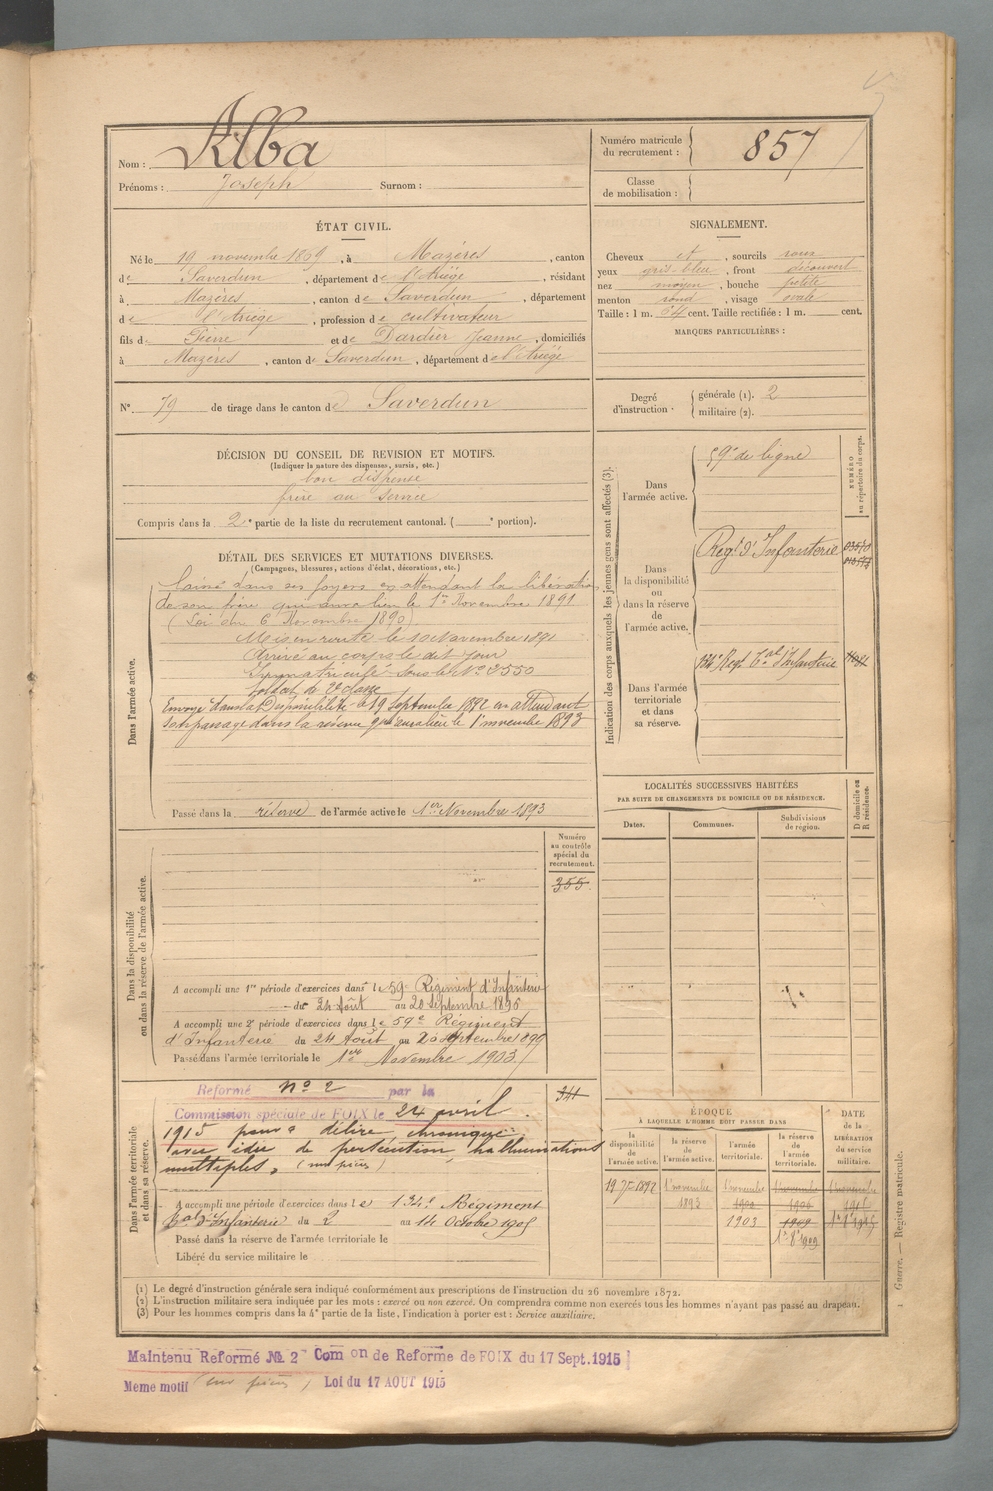 Nom : Alba
Prénoms : Joseph Surnom :
Numéro matricule du recrutement : 857
Classe de mobilisation :
ÉTAT CIVIL.
Né le 19 novembre 1869, à Mazères, canton
de Saverdun, département de l'Ariége, résidant
à Mazères, canton de Saverdun, département
de l'Ariege, profession de cultivateur
fils de Pierre et de Dardier Jeanne, domiciliés
à Mazères, canton de Saverdun, département de l'Ariége
SIGNALEMENT.
Cheveux et, sourcils roux
yeux gris-bleu, front découvert
nez moyen, bouche petite
menton rond, visage ovale
Taille : 1 m. 64 cent. Taille rectifiée : 1 m. cent.
MARQUES PARTICULIÈRES :
N° 79 de tirage dans le canton de Saverdun
Degré d'instruction : générale (1). 2
militaire (2).
DÉCISION DU CONSEIL DE REVISION ET MOTIFS.
(Indiquer la nature des dispenses, sursis, etc.)
bon dispensé
frère au service
Compris dans la 2e partie de la liste du recrutement cantonal. ( e portion).
DÉTAIL DES SERVICES ET MUTATIONS DIVERSES.
(Campagnes, blessures, actions d'éclat, décorations, etc.)
Dans l'armée active.
Laissé dans ses foyers en attendant la libération
de son frère qui aura lieu le 1er Novembre 1891
(Loi du 6 Novembre 1890)
Mis en route le 10 Novembre 1891
Arrivé au corps le dit jour
Immatriculé sous le No 2550
Soldat de 2e classe
Envoyé dans la Disponibilité le 19 Septembre 1892 en attendant
son passage dans la réserve qui aura lieu le 1er novembre 1893
Passé dans la réserve de l'armée active le 1er Novembre 1893
Indication des corps auxquels les jeunes gens sont affectés (3).
NUMÉRO au répertoire du corps.
Dans l'armée active.
59e de ligne
Dans la disponibilité ou dans la réserve de l'armée active.
Regt d'Infanterie
Dans l'armée territoriale et dans sa réserve.
134e Regt Tal d'Infanterie
LOCALITÉS SUCCESSIVES HABITÉES
PAR SUITE DE CHANGEMENTS DE DOMICILE OU DE RÉSIDENCE.
Dates. Communes. Subdivisions de région. D domicile ou R résidence.
Dans la disponibilité ou dans la réserve de l'armée active.
Numéro au contrôle spécial du recrutement.
355
A accompli une 1re période d'exercices dans le 59e Régiment d'Infanterie
du 24 Août au 20 Septembre 1896
A accompli une 2e période d'exercices dans le 59e Régiment
d'Infanterie du 24 Août au 20 Septembre 1899
Passé dans l'armée territoriale le 1er Novembre 1903
Dans l'armée territoriale et dans sa réserve.
341
Reformé no 2 par la
Commission spéciale de FOIX le 24 avril
1915 pour " délire chronique
avec idée de persécution, hallucinations
multiples,
A accompli une période d'exercices dans le 134e Régiment
Tal d'Infanterie du 2 au 14 Octobre 1905
Passé dans la réserve de l'armée territoriale le
Libéré du service militaire le
ÉPOQUE
À LAQUELLE L'HOMME DOIT PASSER DANS
la disponibilité de l'armée active. la réserve de l'armée active. l'armée territoriale. la réserve de l'armée territoriale.
DATE de la LIBÉRATION du service militaire.
19 7bre 1892 1er novembre 1er novembre 1er novembre 1er novembre
1893 1900 1906 1915
1903 1909
1er 8bre 1909
(1) Le degré d'instruction générale sera indiqué conformément aux prescriptions de l'instruction du 26 novembre 1872.
(2) L'instruction militaire sera indiquée par les mots : exercé ou non exercé. On comprendra comme non exercés tous les hommes n'ayant pas passé au drapeau.
(3) Pour les hommes compris dans la 4e partie de la liste, l'indication à porter est : Service auxiliaire.
1 Guerre. — Registre matricule.
Maintenu Reformé No 2 Com on de Reforme de FOIX du 17 Sept. 1915
Meme motif Loi du 17 AOUT 1915